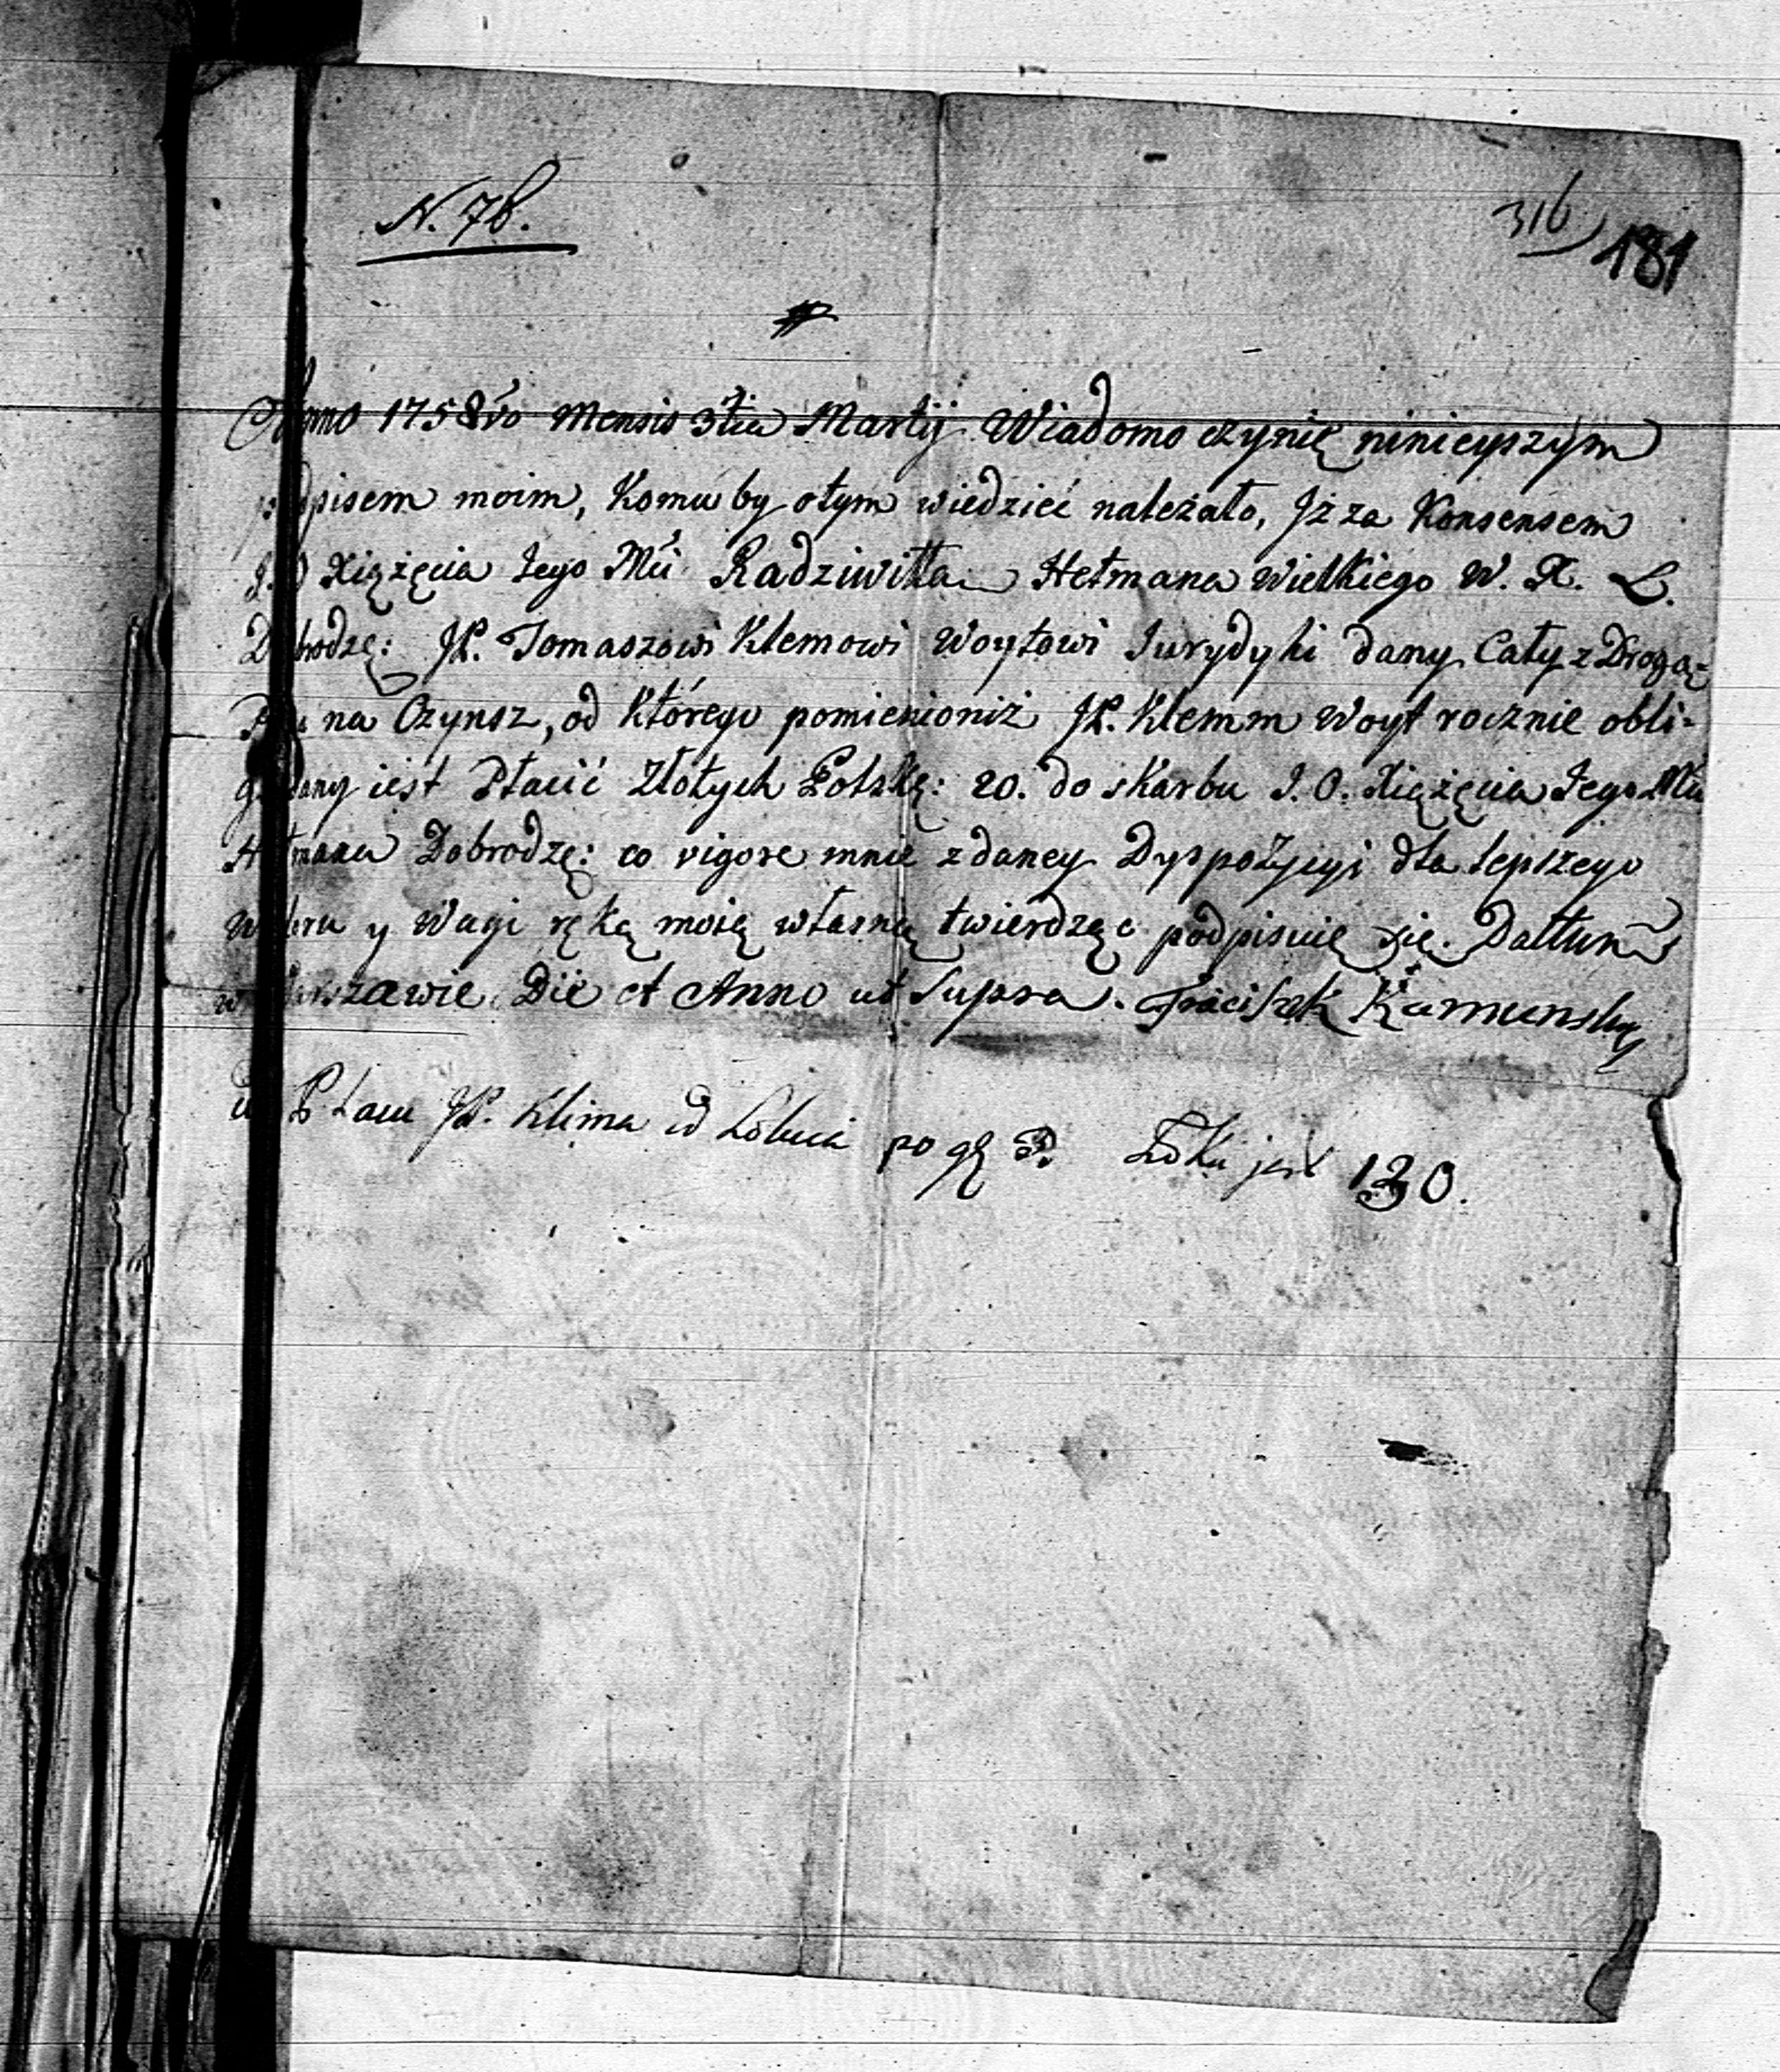 N. 76.
316
181
Anno 1758vo Mensis 3tia Martij Wiadomo czynię ninieyszym
podpisem moim, Komu by otym wiedzieć należało, Jż za Konsensem
J.O Xiążęcia Jego Mći Radziwiłła Hetmana Wielkiego W. X. L.
Dobrodzę: JP. Tomaszowi Klemowi Woytowi Jurydyki dany Cały z Drogą
na Czynsz, od którego pomienioniż JP. Klemm Woyt rocznie obli-
gowany iest Płacić Złotych Polskę: 20. do skarbu J. O. Xiążęcia Jego Mći
Hetmana Dobrodzę: co vigore mnie zdaney Dyspozycyi dla lepszego
waloru y Wagi ręką moią własną twierdząc podpisuię się. Dattum
w Warszawie Die et Anno ut Supra. Franciszek Kamunsky
JP. Klima po 130.